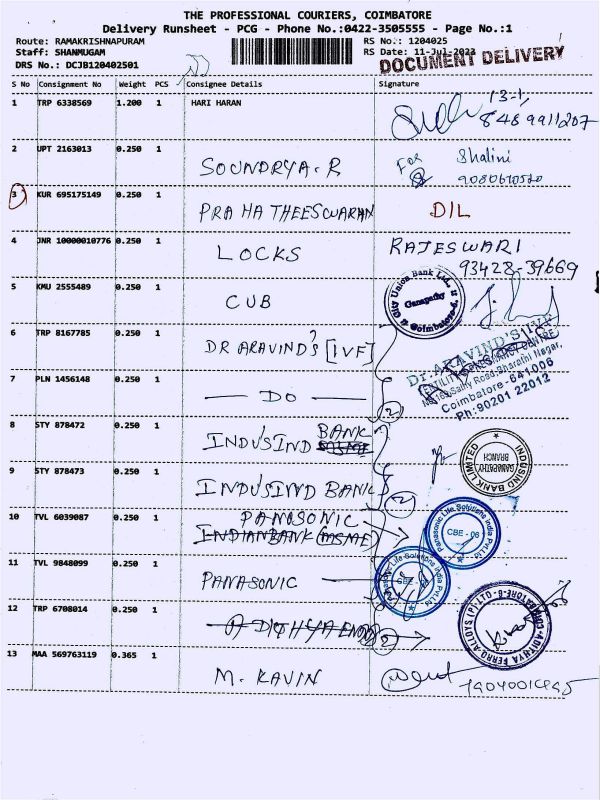 THE PROFESSIONAL COURIERS, COIMBATORE
Delivery Runsheet - PCG - Phone No.:0422-3505555 - Page No.:1
Route: RAMAKRISHNAPURAM
RS No.: 1204025
Staff: SHANMUGAM
RS Date: 11-Jul-2023
DRS No.: DCJB120402501
DOCUMENT DELIVERY
S No Consignment No Weight PCS Consignee Details Signature
1 TRP 6338569 1.200 1 HARI HARAN
13-1,
8489911207
2 UPT 2163013 0.250 1 SOUNDRYA.R
For Shalini
3 KUR 695175149 0.250 1 PRAHATHEESWARAN DIL
4 JNR 10000010776 0.250 1 LOCKS
RAJESWARI
93428-39669
5 KMU 2555489 0.250 1 CUB
City Union Bank Ltd.,
Ganapathy
Coimbatore
6 TRP 8167785 0.250 1 DR ARAVIND'S [IVF]
Dr. ARAVIND'S IVF
FERTILITY & PREGNANCY CENTRE
Sathy Road, Bharathi Nagar,
Coimbatore - 641006
Ph: 90201 22012
7 PLN 1456148 0.250 1 — DO —
2
8 STY 878472 0.250 1 INDUSIND BANK
INDUSIND BANK LIMITED
GANAPATHY
BRANCH
9 STY 878473 0.250 1 INDUSIND BANK
2
10 TVL 6039087 0.250 1 PANASONIC
INDIANBANK (MSME)
Panasonic Life Solutions India Pvt Ltd
CBE - 06
11 TVL 9848099 0.250 1 PANASONIC
Panasonic Life Solutions India Pvt Ltd
CBE - 06
12 TRP 6708014 0.250 1
2
ADITHYA FERRO-ALLOYS (P) LTD
13 MAA 569763119 0.365 1 M. KAVIN